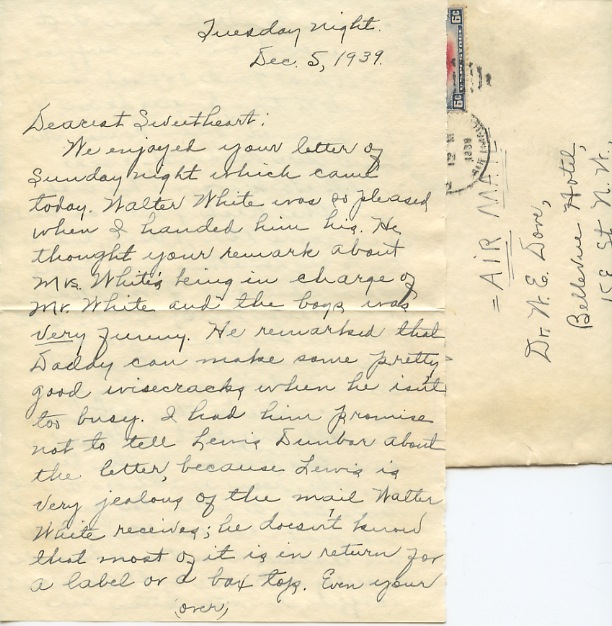 Tuesday night.
Dec. 5, 1939.
Dearest Sweetheart:
We enjoyed your letter of
Sunday night which came
today. Walter White was so pleased
when I handed him his. He
thought your remark about
Mrs. White's being in charge of
Mr. White and the boys was
very funny. He remarked that
Daddy can make some pretty
good wisecracks when he isn't
too busy. I had him promise
not to tell Lewis Dunbar about
the letter, because Lewis is
very jealous of the mail Walter
White receives; he doesn't know
that most of it is in return for
a label or a box top. Even your
(over)
6c 6c
1939
= AIR MAIL
Dr. W. E. Dove,
Bellevue Hotel,
15 E St. N. W.,